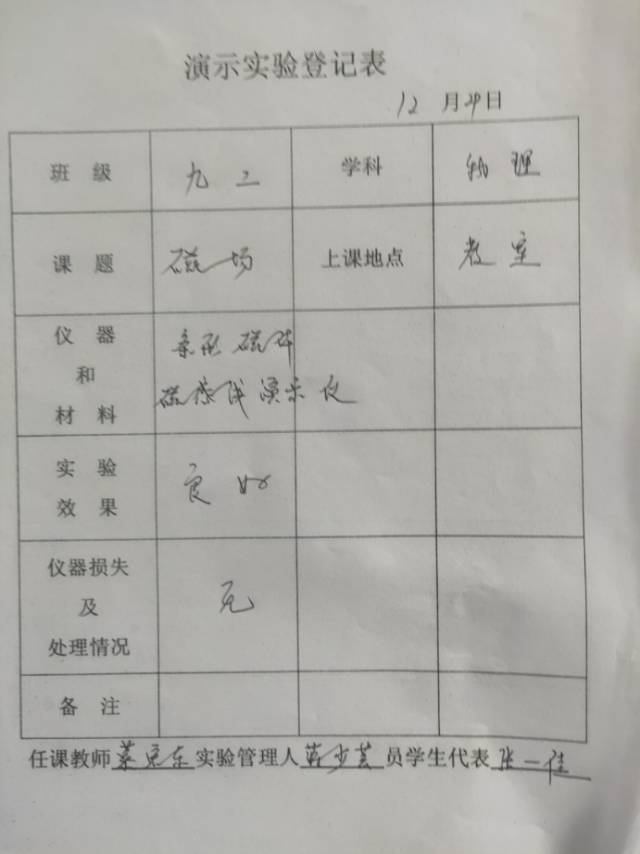 演示实验登记表
12月24日
班 级 九二 学科 物理
课 题 磁场 上课地点 教室
仪 器
和
材 料
条形磁体
磁感线演示仪
实 验
效 果
良好
仪器损失
及
处理情况
无
备 注
任课教师 实验管理人 员学生代表张一佳